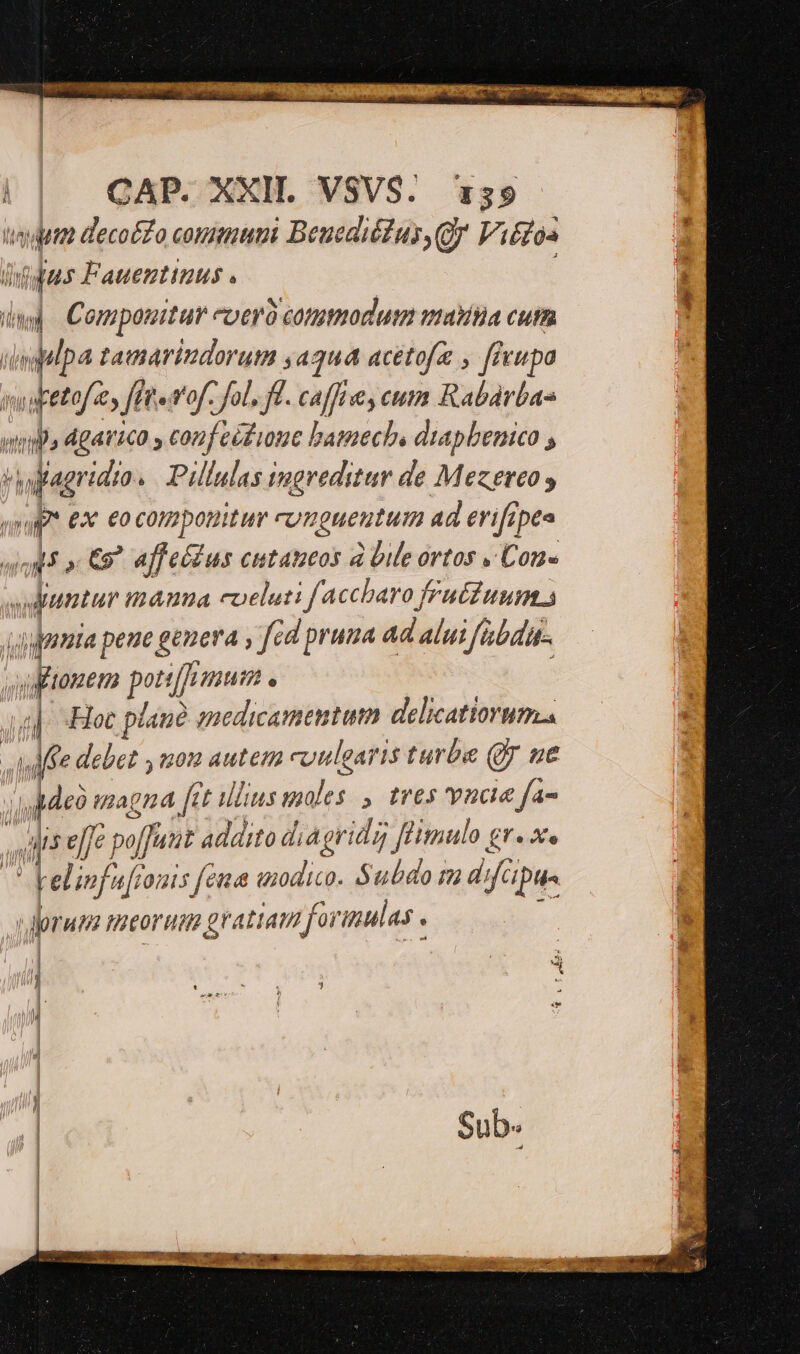 CAP. XXII. VSVS. 139
decocto communi Benedictus, & Victos
Fauentinus.
Componitur verò commodum manna cum
tamarindorum, aqua acetosæ, sirupo
sir. ros. sol. fl. cassiæ, cum Rabárba-
agarico, confectione hamech. diaphenico,
Pillulas ingreditur de Mezereo,
ex eo componitur vnguentum ad erisipe-
& affectus cutaneos à bile ortos. Con-
manna veluti saccharo fructuum
pene genera, sed pruna ad alui subdu-
potissimum.
Hoc planè medicamentum delicatiorum
debet, non autem vulgaris turbæ & ne
magna sit illius moles, tres vnciæ sa-
esse possunt addito diagridij stimulo gr. x.
vel infusionis senæ modico. Subdo in discipu-
meorum gratiam formulas.
Sub-